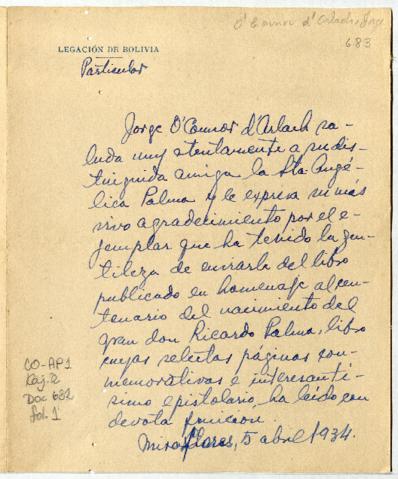 O'Connor d'Arlach, Jorge
683
LEGACIÓN DE BOLIVIA
Particular
Jorge O'Connor d'Arlach sa-
luda muy atentamente a su dis-
tinguida amiga la Sta Angé-
lica Palma y le expresa su más
vivo agradecimiento por el e-
jemplar que ha tenido la gen-
tileza de enviarle del libro
publicado en homenaje al cen-
tenario del nacimiento del
gran don Ricardo Palma, libro
cuyas selectas páginas con-
memorativas e interesantí-
simo epistolario, ha leído con
devota fruición.
Miraflores, 5 abril 1934.
CO-AP1
Caj. 2
Doc 682
fol. 1